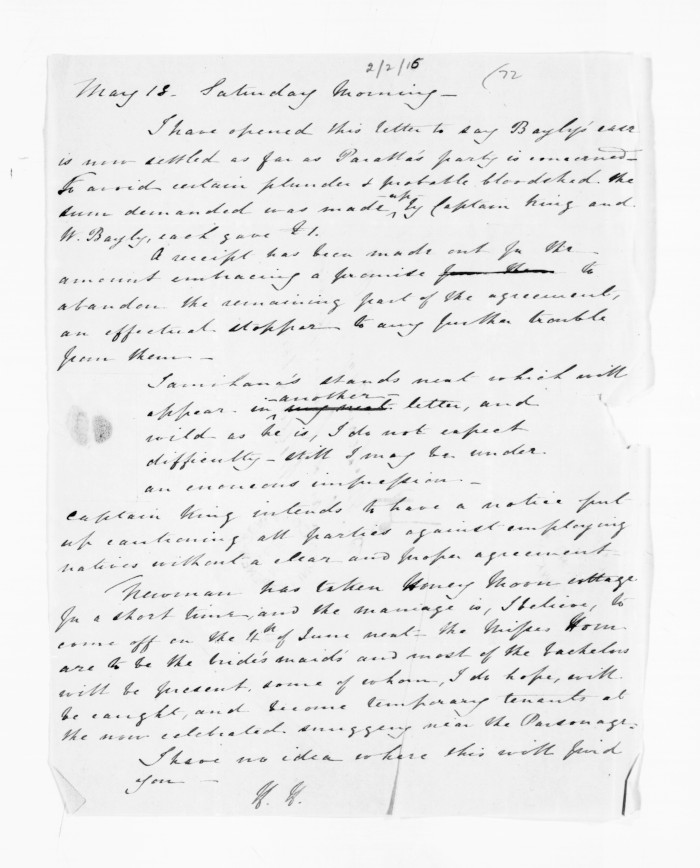 2/2/16
(72
May 13. Saturday Morning –
I have opened this letter to say Bayly's case
is now settled as far as Paratta's party is concerned –
To avoid certain plunder & probable bloodshed. the
sum demanded was made up by Captain King and
W. Bayly, each gave £1.
A receipt has been made out for the
amount embracing a promise from them to
abandon the remaining part of the agreement,
an effectual stopper to any further trouble
from them –
Tamihana's stands next which will
appear in my next another letter, and
wild as he is, I do not expect
difficulty – still I may be under
an enoneous impression –
Captain King intends to have a notice put
up cautioning all parties against employing
natives without a clear and proper agreement –
Newman has taken Honey Moon cottage
for a short time, and the marriage is, I believe, to
come off on the 4th of June next – the Misses Hom
are to be the bride's maid's and most of the bachelors
will be present, some of whom, I do hope, will
be caught, and become temporary tenants at
the now celebrated snuggery near the Parsonage –
I have no idea where this will find
you –
H. H.